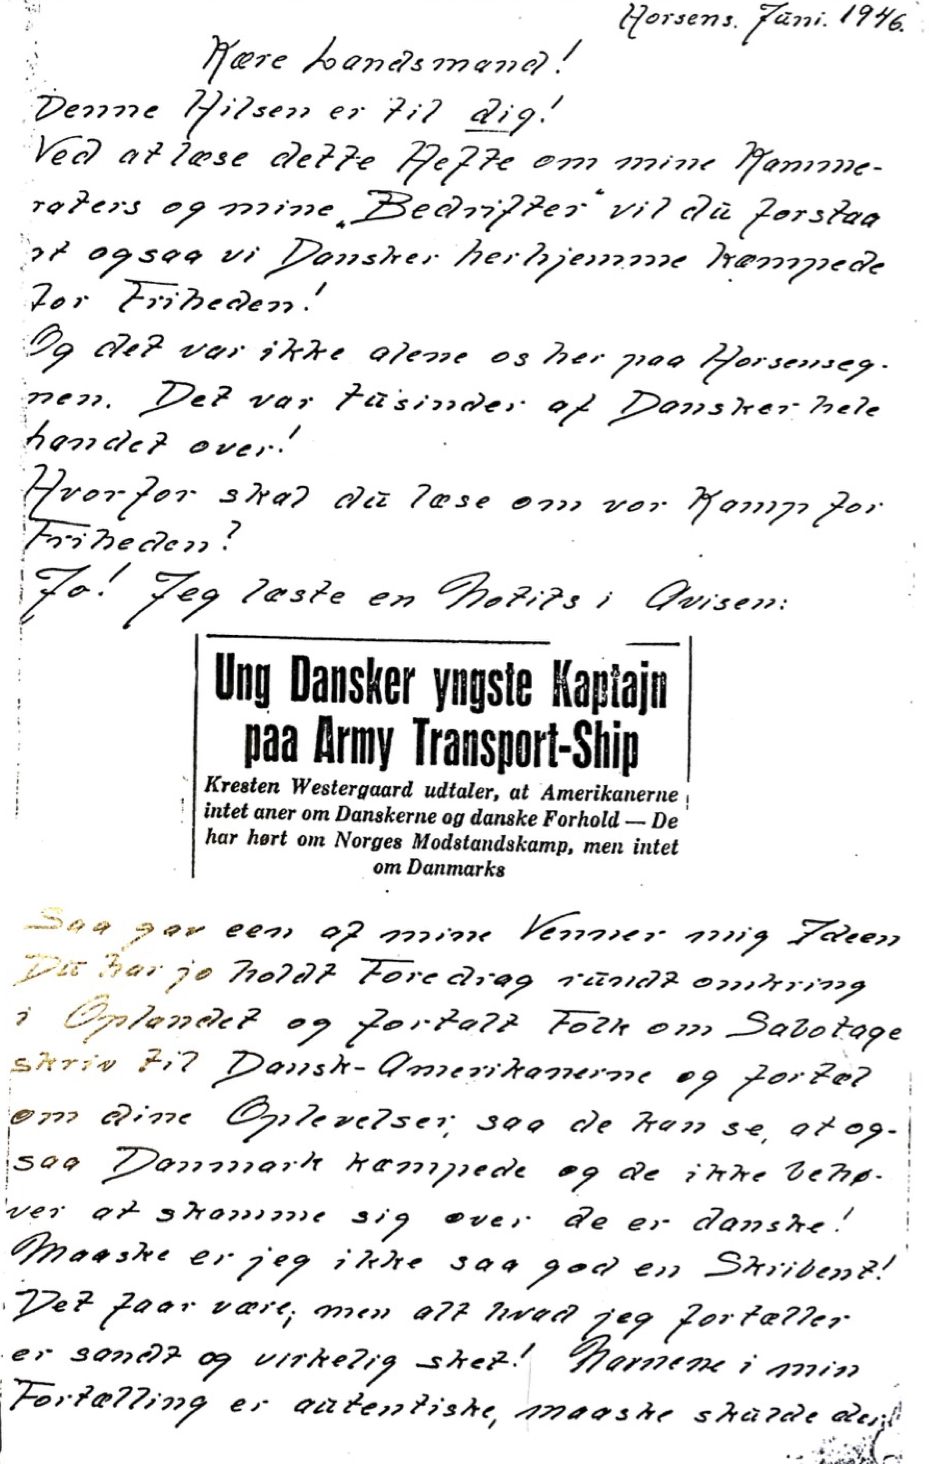 Horsens. Juni. 1946.
Kære Landsmand!
Denne Hilsen er til dig!
Ved at læse dette Hefte om mine Kamme-
raters og mine „Bedrifter“ vil dū forstaa
at ogsaa vi Dansker herhjemme kæmpede
for Friheden!
Og det var ikke alene os her paa Horsenseg-
nen. Det var tūsinder af Dansker hele
Landet over!
Hvorfor skal dū læse om vor Kamp for
Friheden?
Jo! Jeg læste en Notits i Avisen:
Ung Dansker yngste Kaptajn
paa Army Transport-Ship
Kresten Westergaard udtaler, at Amerikanerne
intet aner om Danskerne og danske Forhold — De
har hørt om Norges Modstandskamp, men intet
om Danmarks
Saa gav een af mine Venner mig Ideen
Dū har jo holdt Foredrag rūndt omkring
i Oplandet og fortalt Folk om Sabotage
skriv til Dansk-Amerikanerne og fortæl
om dine Oplevelser, saa de kan se, at og-
saa Danmark kæmpede og de ikke behø-
ver at skamme sig over de er danske!
Maaske er jeg ikke saa god en Skribent!
Det faar være; men alt hvad jeg fortæller
er sandt og virkelig sket! Navnene i min
Fortælling er aūtentiske, maaske skūlde